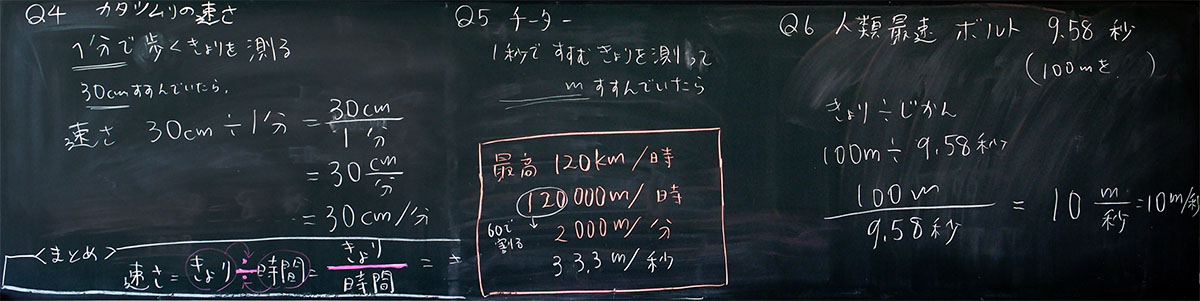 Q4 カタツムリの速さ
1分で歩くきょりを測る
30cmすすんでいたら、
速さ 30cm÷1分 = 30cm/1分
= 30 cm/分
= 30cm/分
<まとめ>
速さ=きょり÷時間=きょり/時間=
Q5 チーター
1秒ですすむきょりを測って
mすすんでいたら
最高 120km/時
120000m/時
60で割る
2000m/分
33.3m/秒
Q6 人類最速 ボルト 9.58秒
(100mを )
きょり÷じかん
100m÷9.58秒
100m/9.58秒 = 10 m/秒=10m/秒